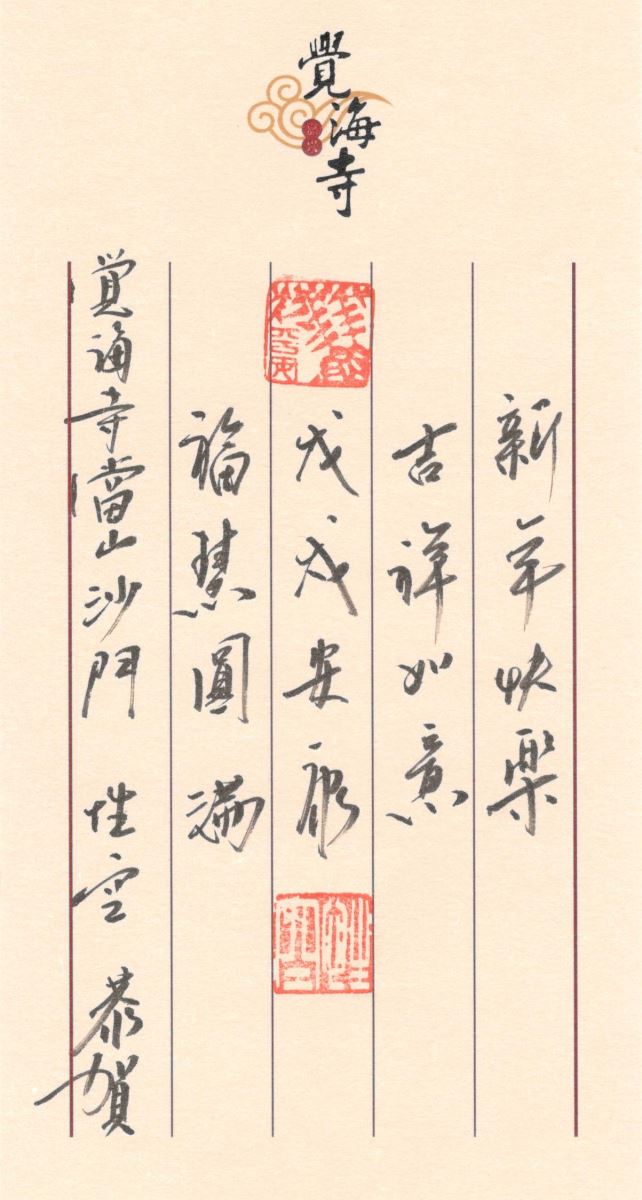 覺海寺
新年快樂
吉祥如意
戊戌安康
福慧圓滿
覚海寺當山沙門 性空 恭賀